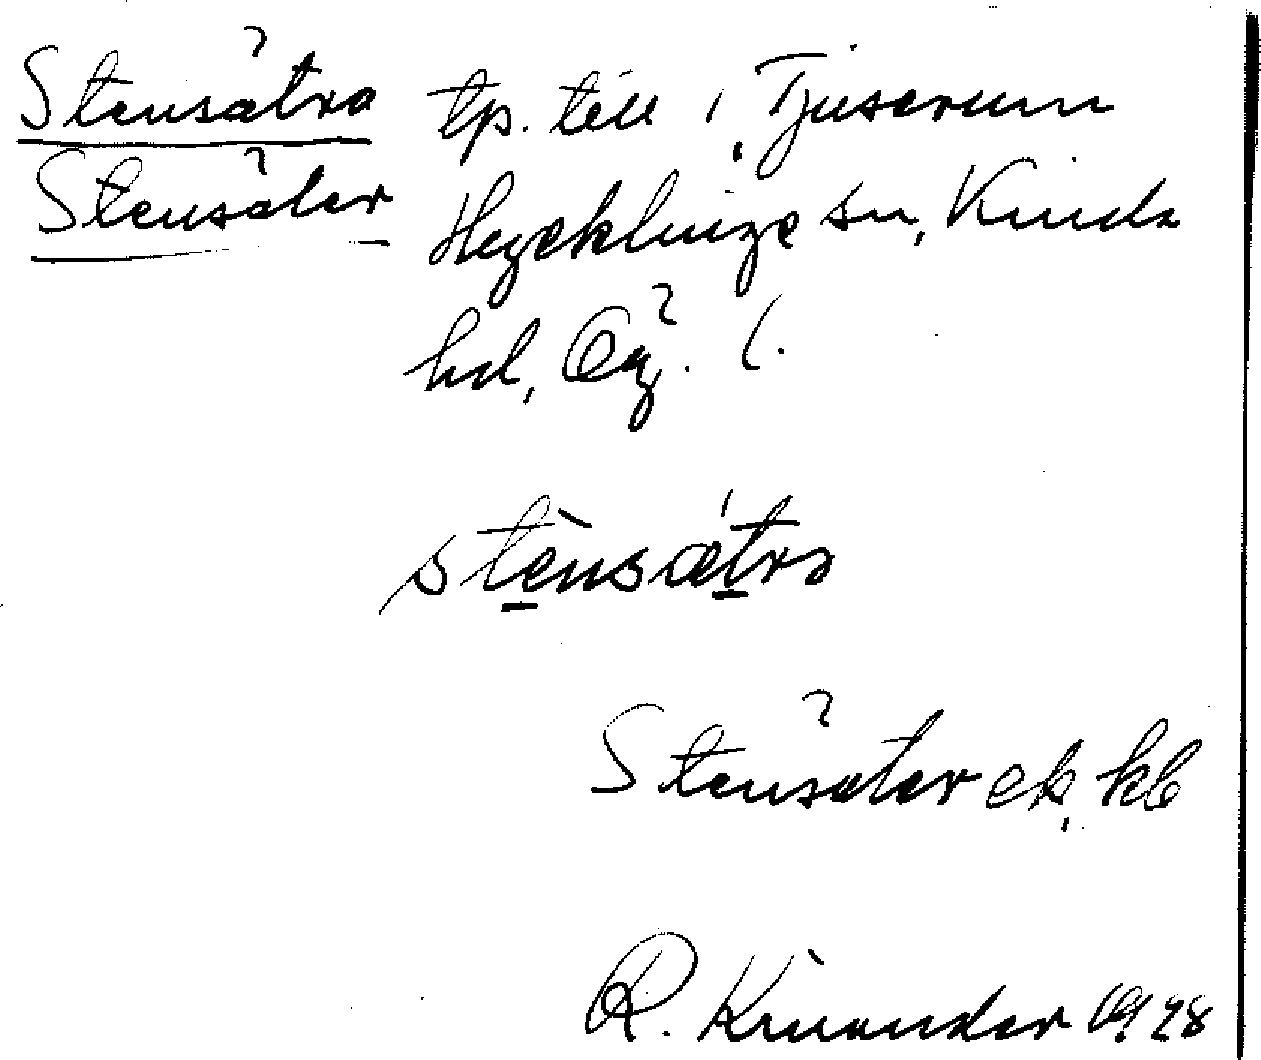 Stensätra tp. till i Tjuserum
Stensäter Hycklinge sn, Kinda
hd, Ög. l.
stènsætra
Stensäter ek, kb
R. Kinander 1928